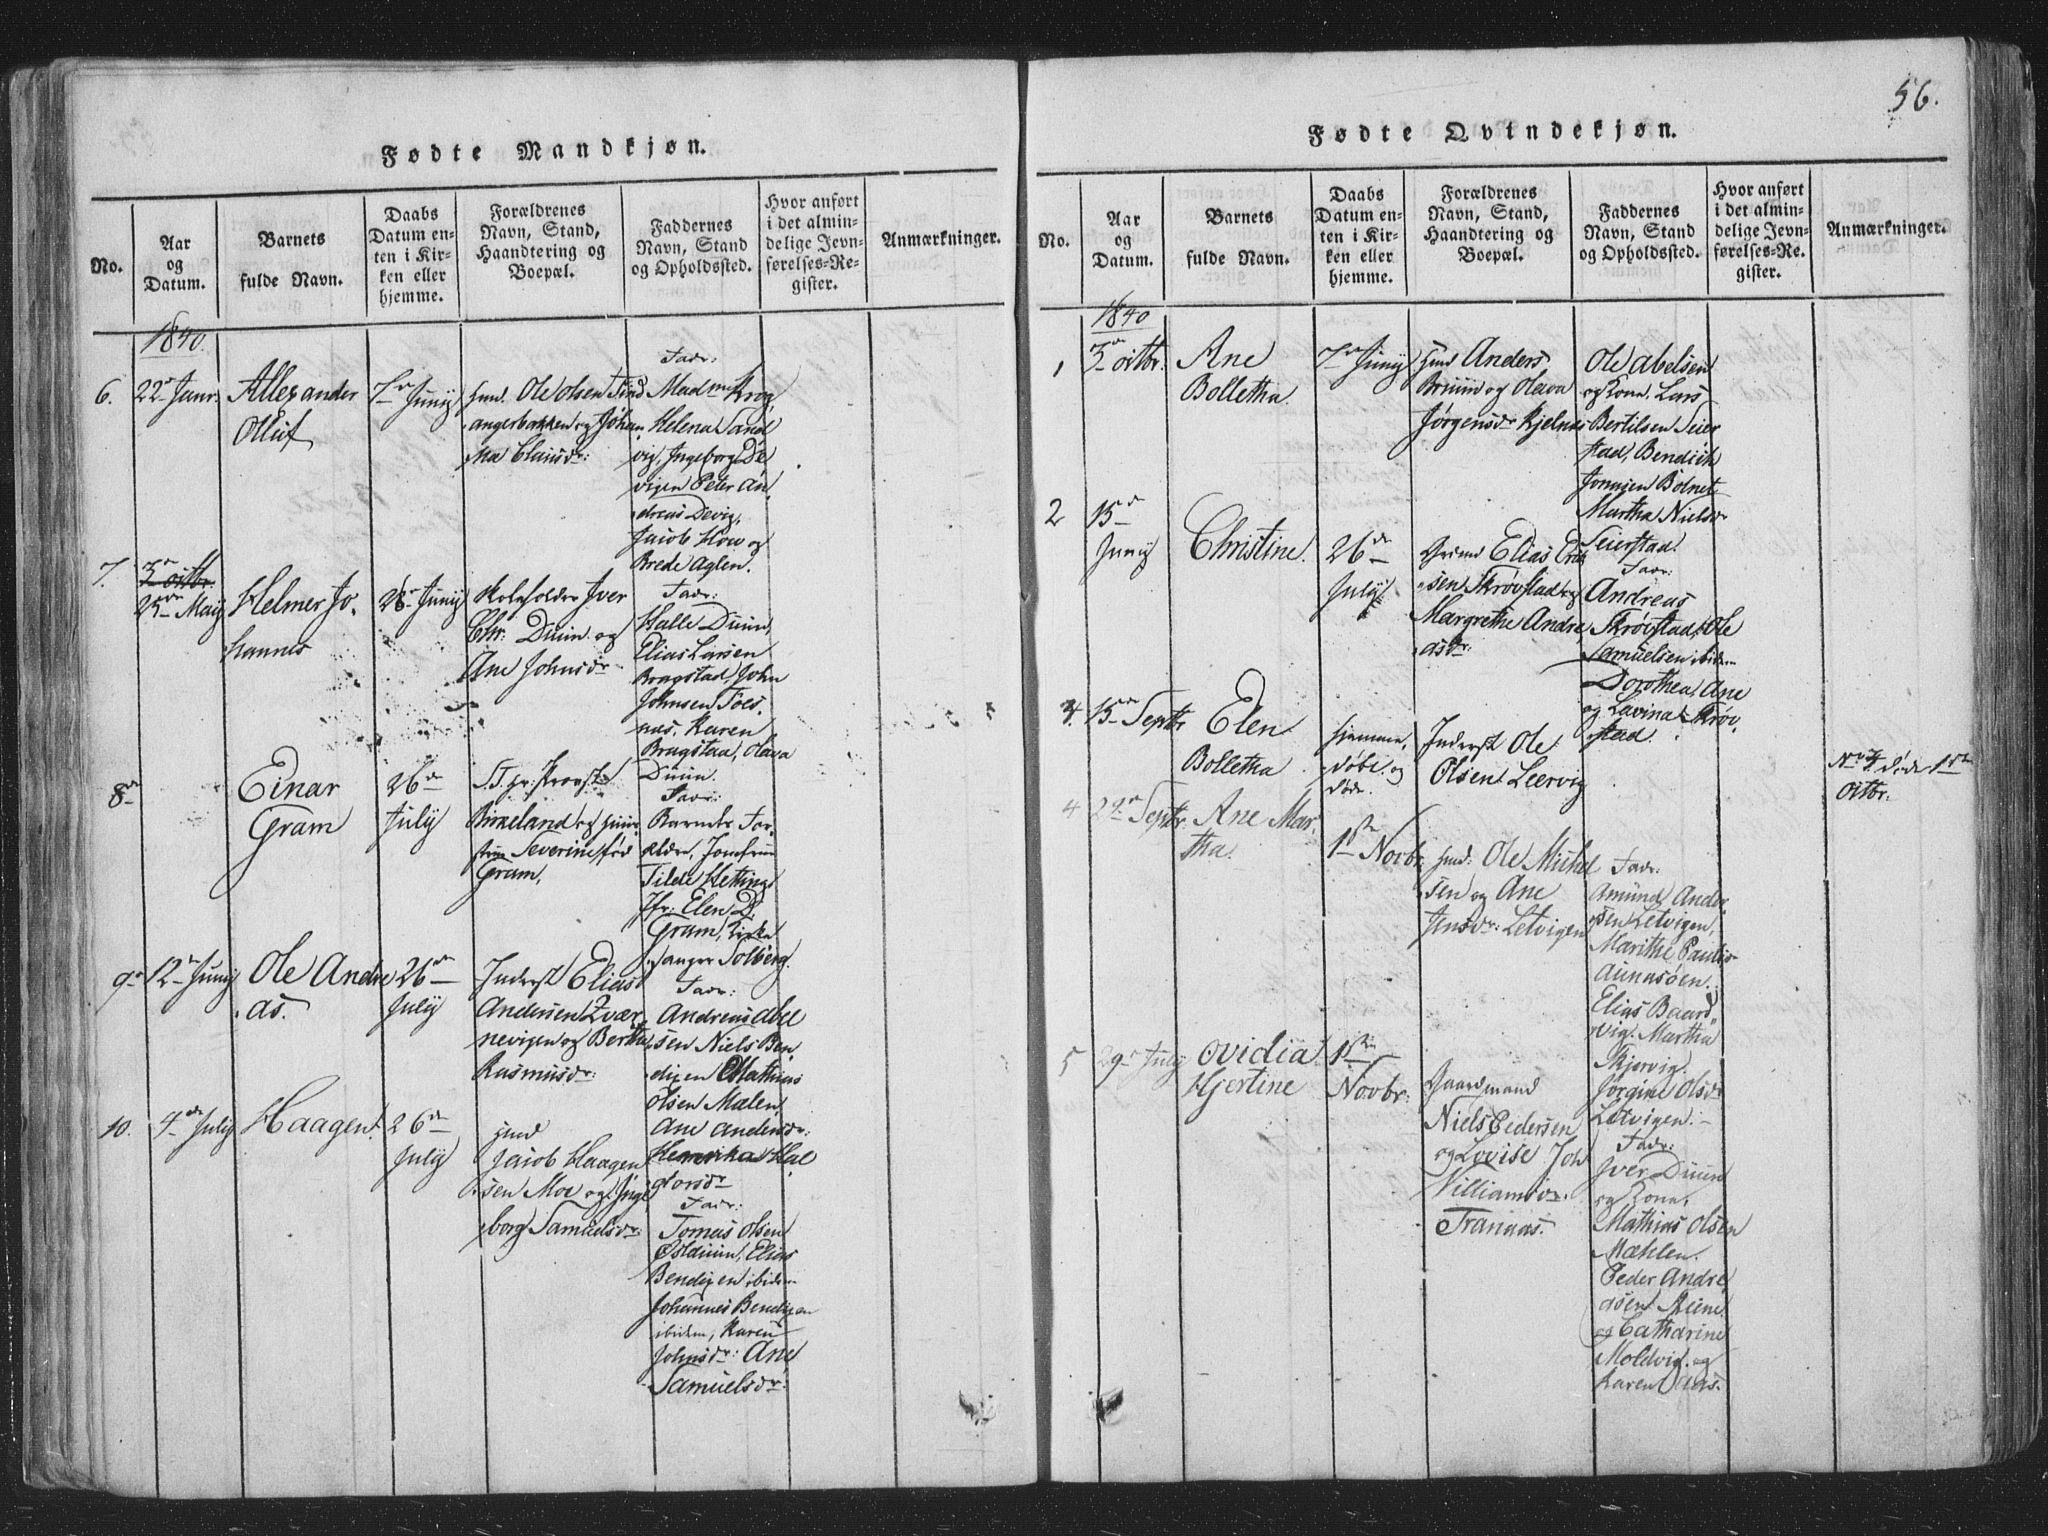 56.
Fødte Mandkjøn.
No.
Aar
og
Datum.
Barnets
fulde Navn.
Daabs
Datum en-
ten i Kir-
ken eller
hjemme.
Forældrenes
Navn, Stand,
Haandtering og
Boepæl.
Faddernes
Navn, Stand
og Opholdssted.
Hvor anført
i det almin-
delige Jevn-
førelses-Re-
gister.
Anmærkninger.
1840.
6.
22de Janr.
Allexander
Olluf
7de Junij
Hmd. Ole Olsen Find
angerbakken og Johan
Ma Clausdr:
Fadr:
Madme Krog
Helena Sand
vig, Ingeborg De
vigen Peter An,
dreas Devig,
Jacob How og
Brede Aglen.
7.
3de octbr.
25de Maij
Helmer Jo,
hannes
28de Junij
Iver
Chr: Duun og
Ane Johnsdr
Fadr:
Halle Duun,
Elias Larsen
Bragstad, John
Johnsen Foes,
nes, Karen
Bragstad, Olava
Duun.
8de
Einar
Gram
26de
Julij
S.T. Hr: Provst
Birkeland og Huu,
strue Severine fød
Gram,
Fadr:
Barnets For,
ældre, Jomfrue
Tilde Hetting
Jfr: Elen D.
Gram, Kirke
sanger Solberg.
9de
12de Junij
Ole Andre
as.
26de
Julij
Inderst Elias
Andersen Zvær
nevigen og Bertha
Rasmusdr:
Fadr:
Andreas Abel
sen Niels Ben,
dixen Mathias
Olsen Malen,
Ane Andersdr:
Henrika Hal
dorsdr
10.
4de Julij
Haagen
26de
Julij
Hmd
Jacob Haagen
sen Moe og Inge
borg Samuelsdr:
Fadr:
Tomas Olsen
Østduun, Elias
Bendixen ibidem
Johannes Bendixen
ibidem, Karen
Johnsdr: Ane
Samuelsdr:
Fødte Qvindekjøn.
No.
Aar
og
Datum.
Barnets
fulde Navn.
Daabs
Datum en-
ten i Kir-
ken eller
hjemme.
Forældrenes
Navn, Stand,
Haandtering og
Boepæl.
Faddernes
Navn, Stand
og Opholdssted.
Hvor anført
i det almin-
delige Jevn-
førelses-Re-
gister.
Anmærkninger.
1840
1
3de octbr.
Ane
Bolletha
7de Junij
Hmd Anders
Bruun og Olava
Jørgensdr Kjelnes
Ole Abelsen
og Kone, Lars
Bertilsen Seier
stad, Bendick
Jonnsen Bolnet
Martha Nielsdr
Seierstad.
2
15de
Junij
Christine.
26de
Julij
Grmd Elias Erik
sen Skrøvstad og
Margrethe Andre,
asdr:
Fadr:
Andreas
Skrøvstad, Ole
Samuelsen ibidem
Dorothea, Ane
og Lavina Skrøv,
stad.
3.
15de Septbr
Elen
Bolletha
hjemme,
døbt og
døde.
Inderst Ole
Olsen Leervig
No 3 døde 1ste
octbr.
4
22de Septbr.
Ane Mar,
tha.
1ste Novbr.
Hmd: Ole Michel
sen og Ane
Jensdr: Letvigen
Fadr:
Amund Ander,
sen Letvigen,
Marithe Pauls
aunasøen.
Elias Baard
vig. Martha
Skjervig.
Jørgine Olsdr
Letvigen.
5
29de Julij
Ovidia
Hjertine
1ste
Novbr.
Gaardmand
Niels Pedersen
og Lovise Joh
Villiamsdr.
Tranaas.
Fadr:
Iver Duun
og Kone.
Mathias Olsen
Mæhlen.
Peder Andre
asen Aune
og Catharine
Moldvig. og
Karen Aas.